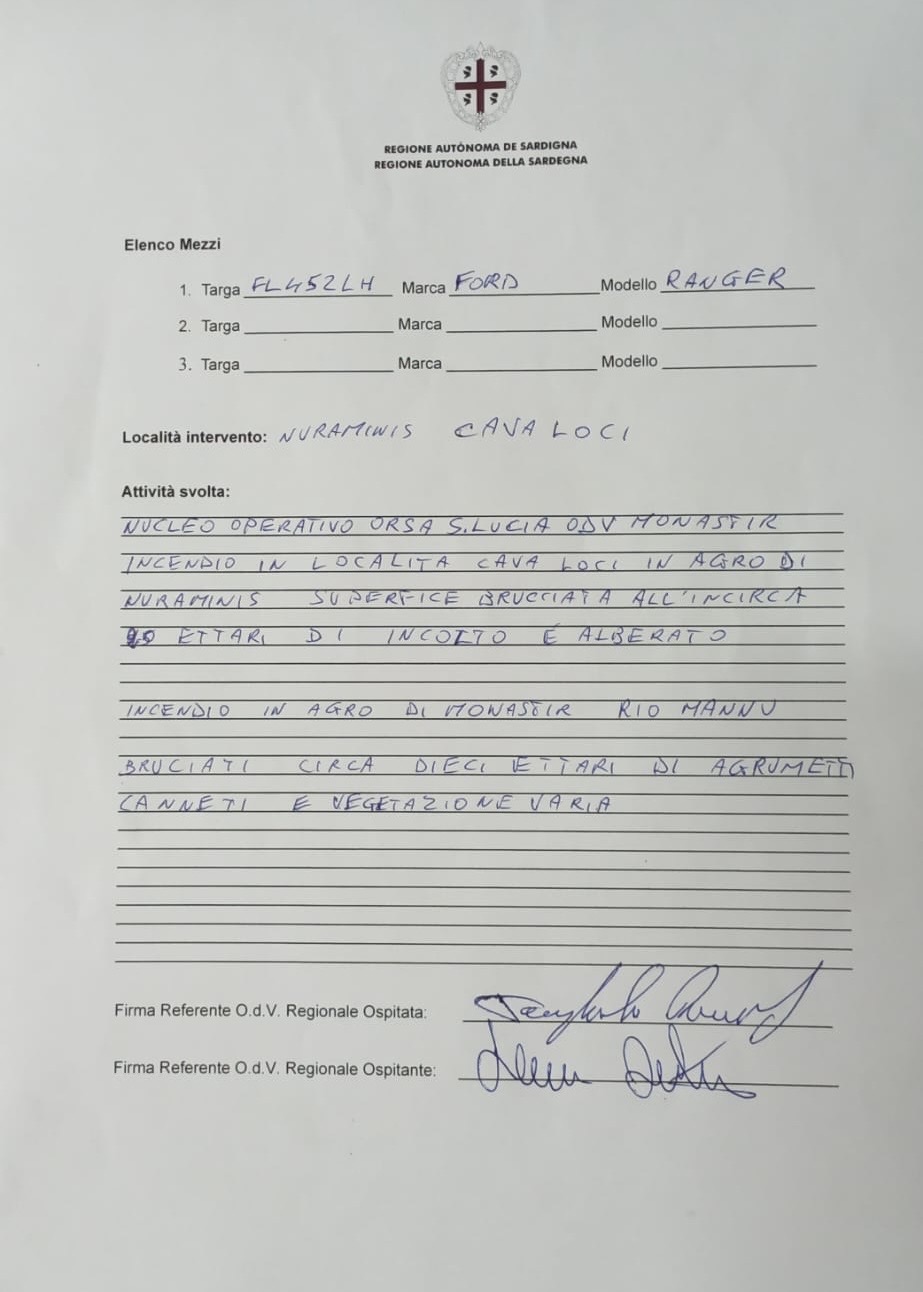 REGIONE AUTÒNOMA DE SARDIGNA
REGIONE AUTONOMA DELLA SARDEGNA
Elenco Mezzi
1. Targa FL452LH Marca FORD Modello RANGER
2. Targa Marca Modello
3. Targa Marca Modello
Località intervento: NURAMINIS CAVA LOCI
Attività svolta:
NUCLEO OPERATIVO ORSA S.LUCIA ODV MONASTIR
INCENDIO IN LOCALITA CAVA LOCI IN AGRO DI
NURAMINIS SUPERFICE BRUCCIATA ALL'INCIRCA
ETTARI DI INCOLTO E ALBERATO
INCENDIO IN AGRO DI MONASTIR RIO MANNU
BRUCIATI CIRCA DIECI ETTARI DI AGRUMETI
CANNETI E VEGETAZIONE VARIA
Firma Referente O.d.V. Regionale Ospitata:
Firma Referente O.d.V. Regionale Ospitante: